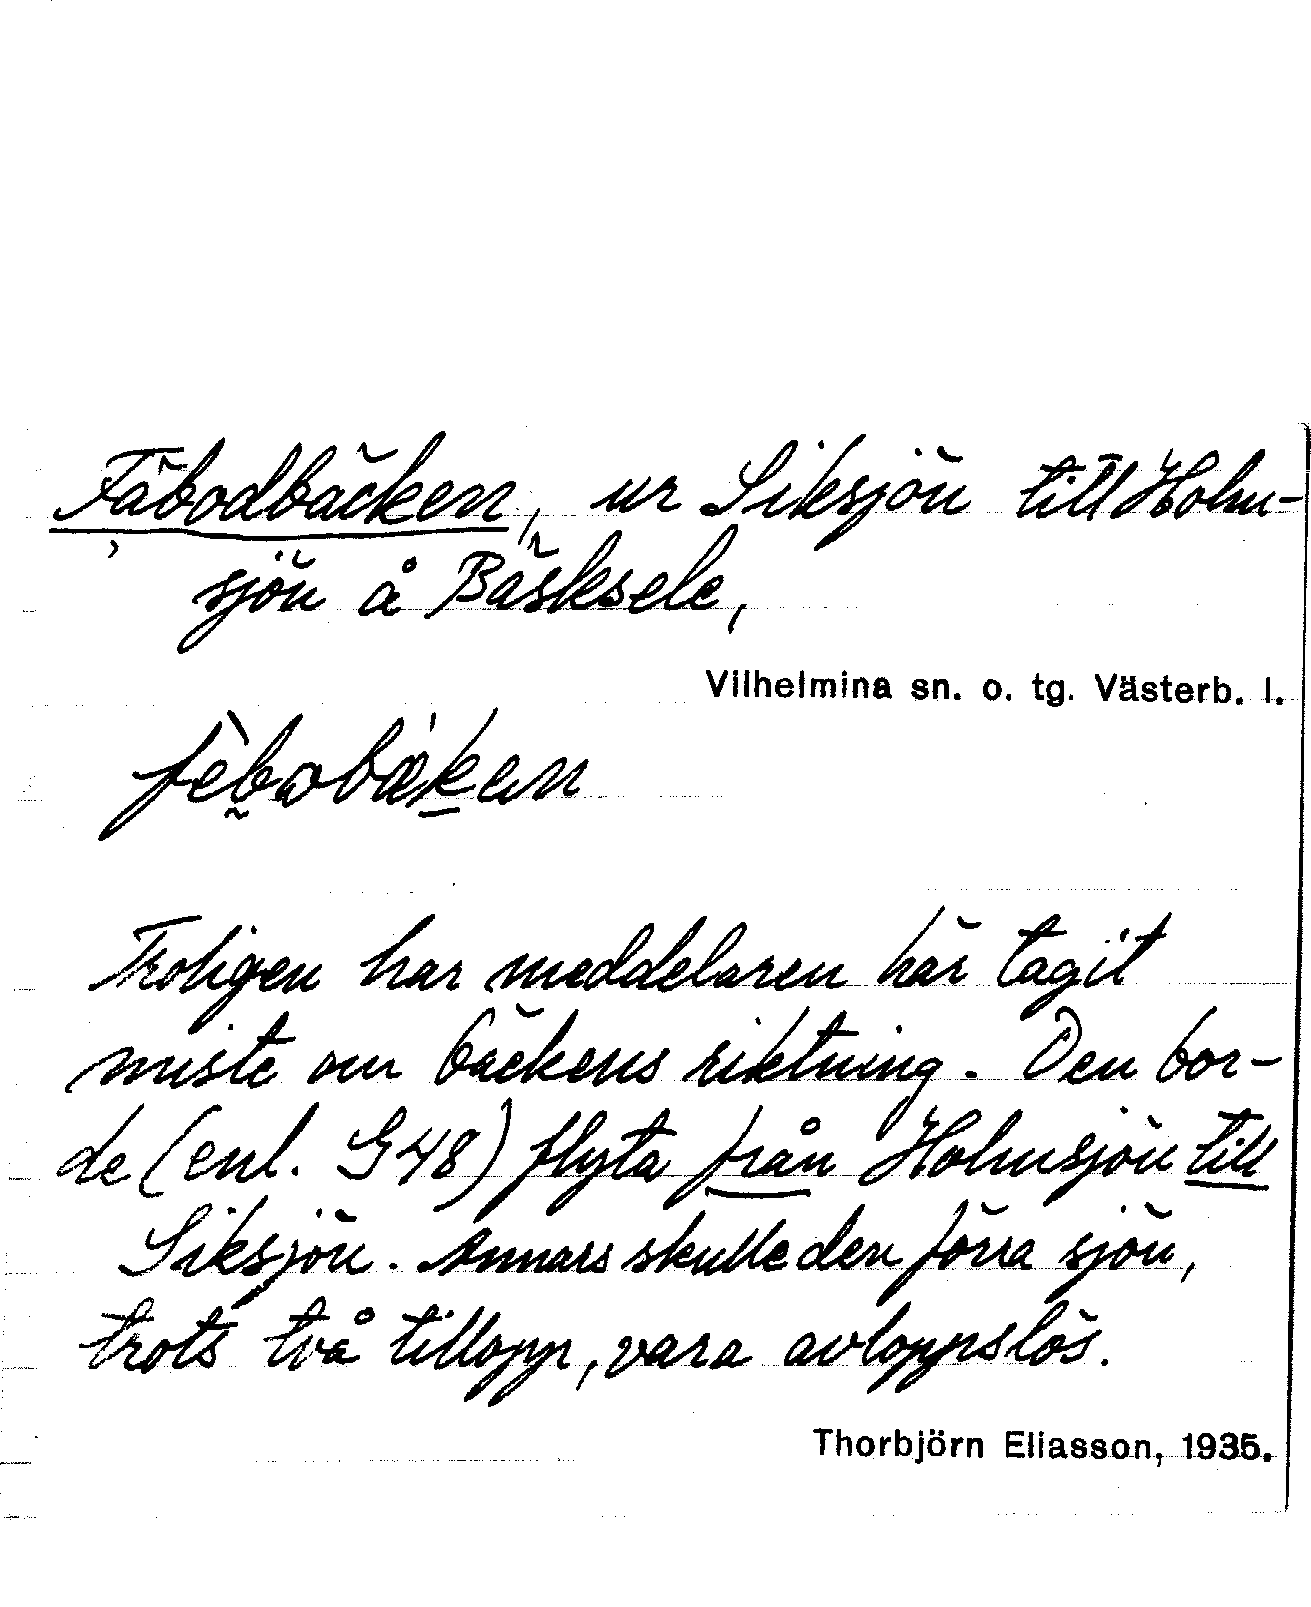 Fäbodbäcken, ur Siksjön till Holm-
sjön å Bäsksele,
Vilhelmina sn. o. tg. Västerb. l.
Troligen har meddelaren här tagit
miste om bäckens riktning. Den bor-
de (enl. G48) flyta från Holmsjön till
Siksjön. Annars skulle den förra sjön,
trots två tillopp, vara avloppslös.
Thorbjörn Eliasson, 1935.